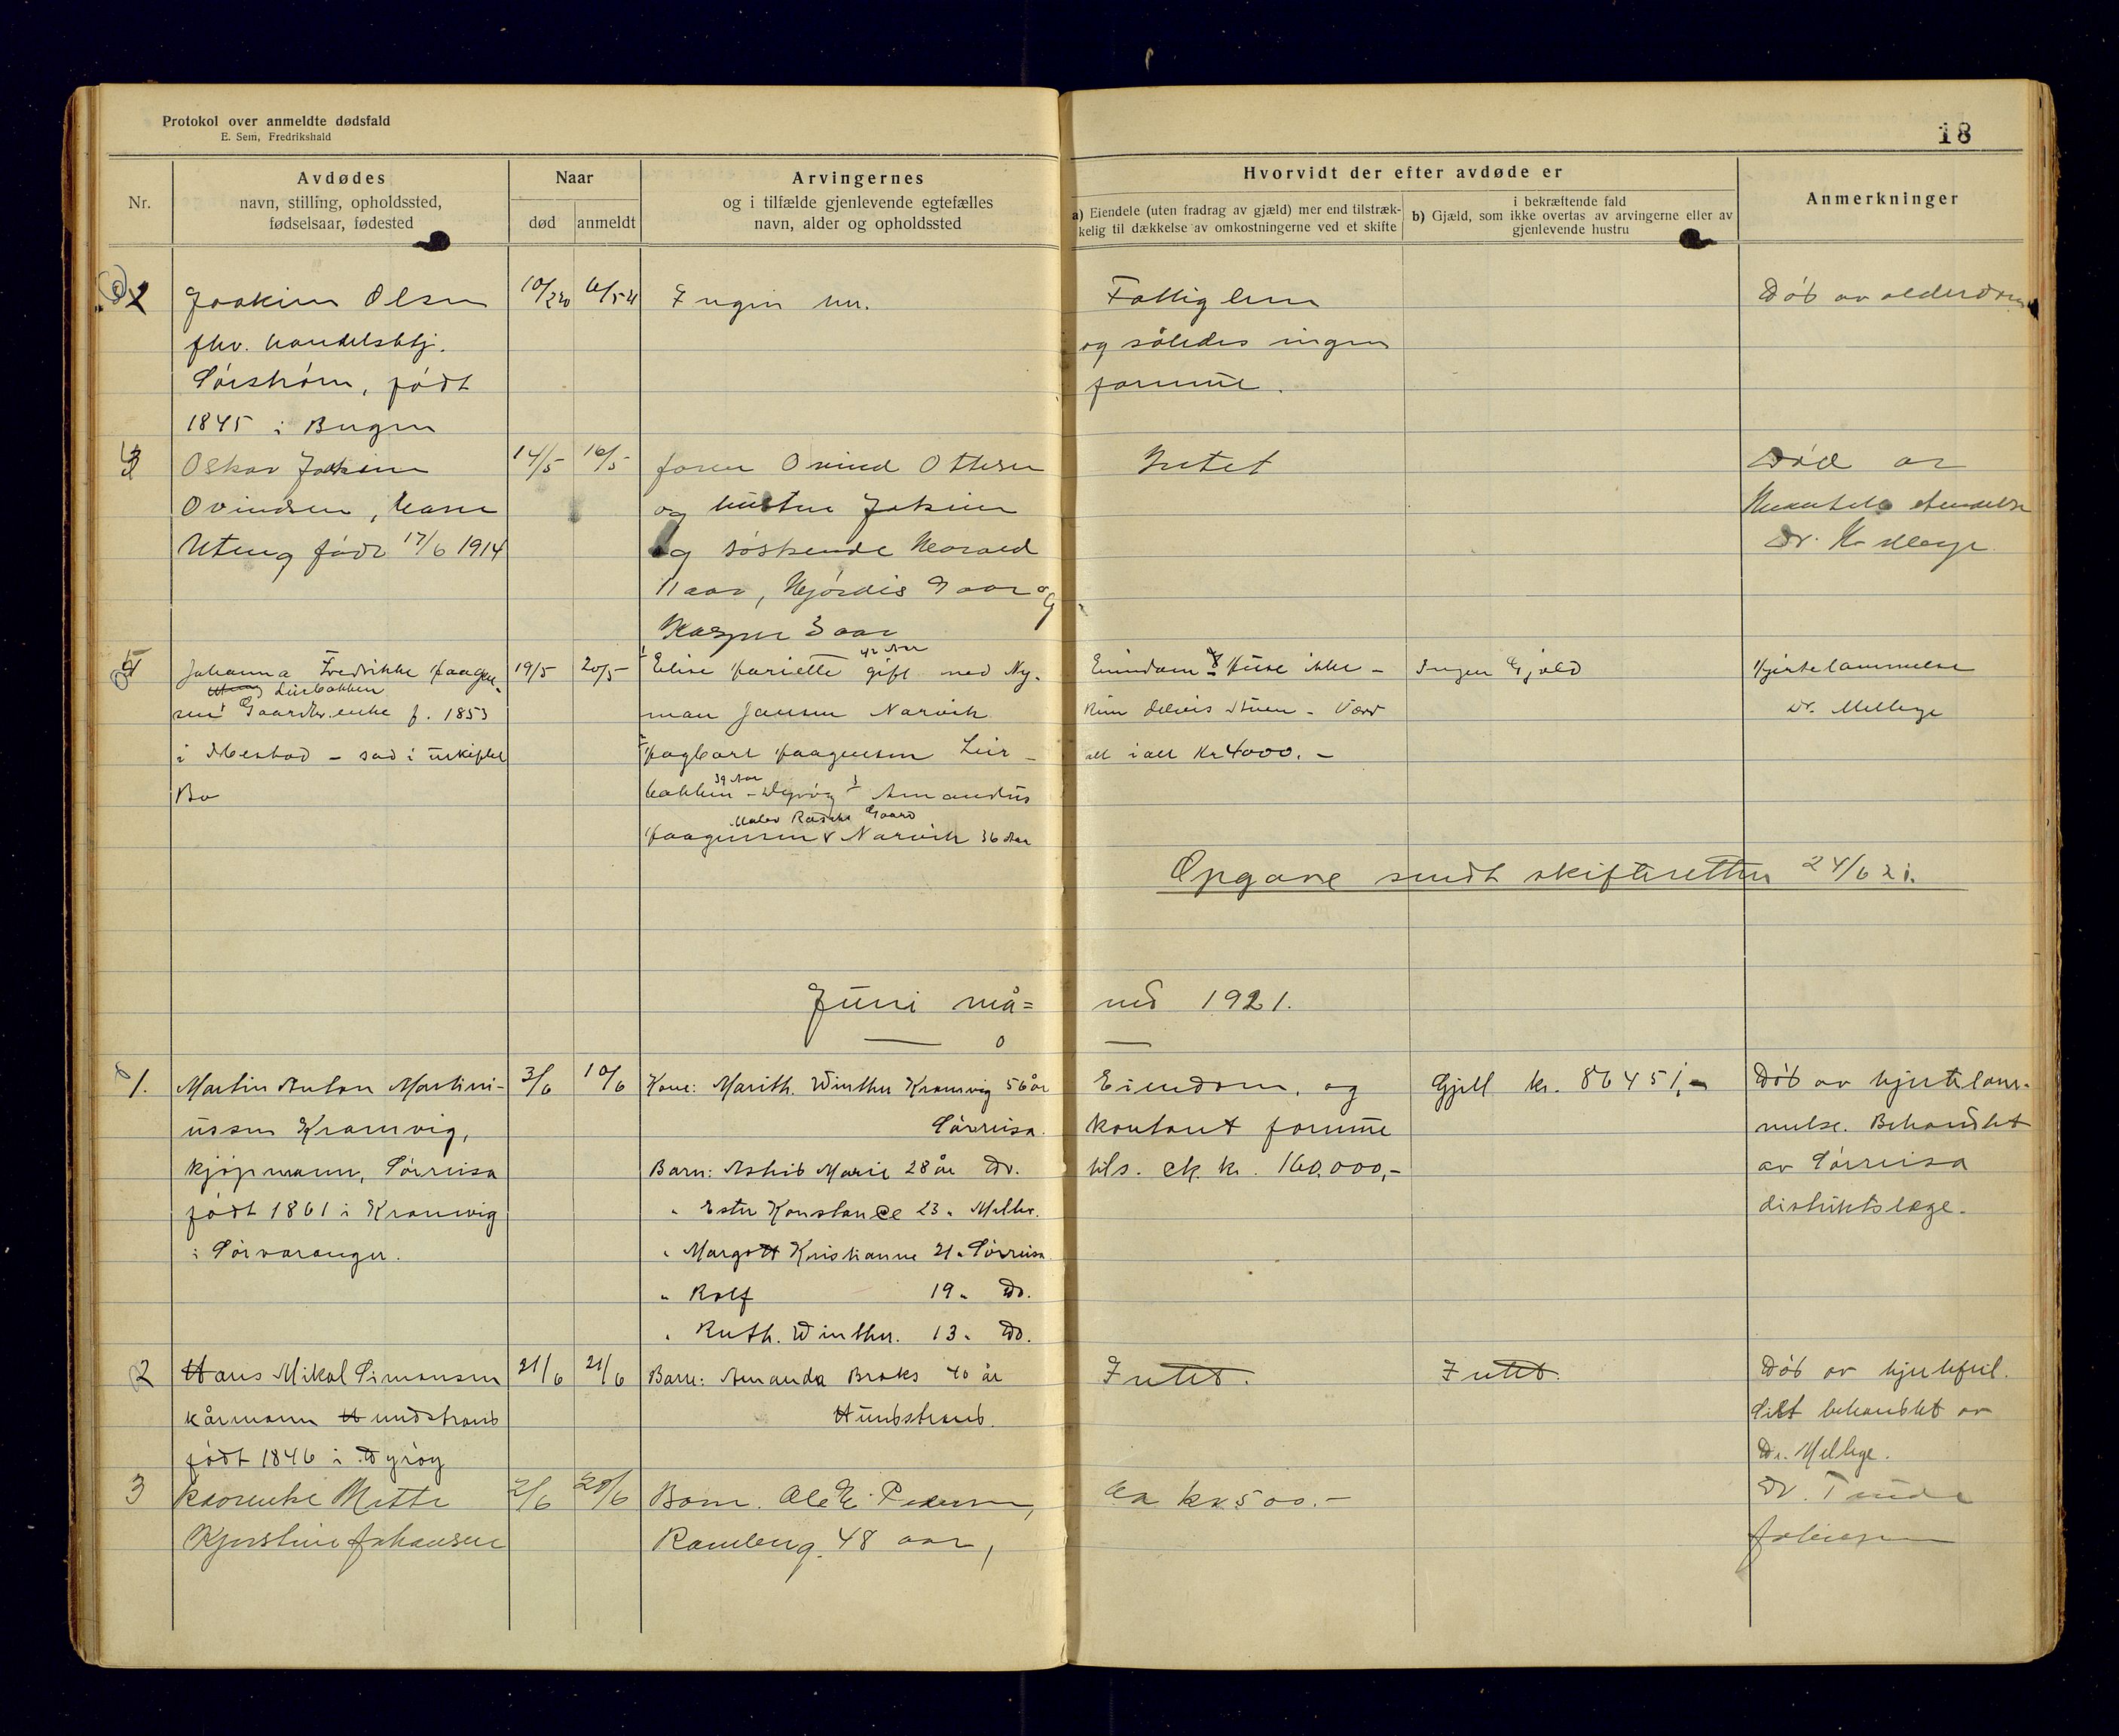 Protokol over anmeldte dødsfald
E. Sem, Fredrikshald
18
Nr.
Avdødes
navn, stilling, opholdssted,
fødselsaar, fødested
Naar
død
anmeldt
Arvingernes
og i tilfælde gjenlevende egtefælles
navn, alder og opholdssted
Hvorvidt der efter avdøde er
a) Eiendele (uten fradrag av gjæld) mer end tilstræk-
kelig til dækkelse av omkostningerne ved et skifte
i bekræftende fald
b) Gjæld, som ikke overtas av arvingerne eller av
gjenlevende hustru
Anmerkninger
2 Joakim Olsen
fhv. handelsbtj.
Sørstrøm, født
1845 i Bugen
Ingen
Fattiglem
og således ingen
formue.
Død av alderdom
3 Oskar Joakim
Ovindsen,
født 17/6 1914
14/5 16/5
Ovind Ottesen
og hustru
og søskende Harald
11 aar, Hjørdis 9 aar og
Kasper 3 aar
Intet
Død av
Dr.
4 Johanna Fredrikke Haagen-
Leirbakken
sen Gaardbr. enke f. 1853
i Mestad - sad i uskiftet
Bo
19/5 20/5
1 Elise Hariette gift med Ny-
42 Aar
man Jansen Narvik
2 Hagbart Haagensen Leir-
bakken - Dyrøy 3 Amandus
39 Aar
Haagensen Narvik 36 Aar
Eiendom Huse ikke -
Stuen - Værd
alt ialt Kr 4000.-
Ingen Gjæld
Hjertelammelse
Dr. Mellbye
Opgave sendt skifteretten 24/6 21.
Juni må=
ned 1921.
1. Martin Anton Martini-
ussen Kramvig,
kjøpmann, Sørreisa
født 1861 i Kramvig
i Sørvaranger.
3/6 10/6
Kone: Marith. Winther Kramvig 56 år
Sørreisa.
Barn: Astrid Marie 28 år Do.
" Ester Konstance 23 "
" Margott Kristianne 21 " Sørreisa
" Rolf 19 " Do.
" Ruth. Winther. 13 " Do.
Eiendom, og
kontant formue
tils. ck. kr. 160.000,-
Gjell kr. 86451,-
Død av hjertelam-
melse. Behandlet
av Sørreisa
distriktslege.
2 Hans Mikal Simonsen
kårmann Hundstrand
født 1846 i Dyrøy
21/6 21/6
Barn: Amanda Broks 40 år
Hundstrand.
Intet.
Intet.
Død av hjertefeil.
Sist behandlet av
Dr. Mellbye.
3 Kaarenke Mette
Kjerstine Johansen
2/6 20/6
Barn. Ole E. Pedersen,
Ramberg. 48 aar,
Ca kr 500.-
Dr.